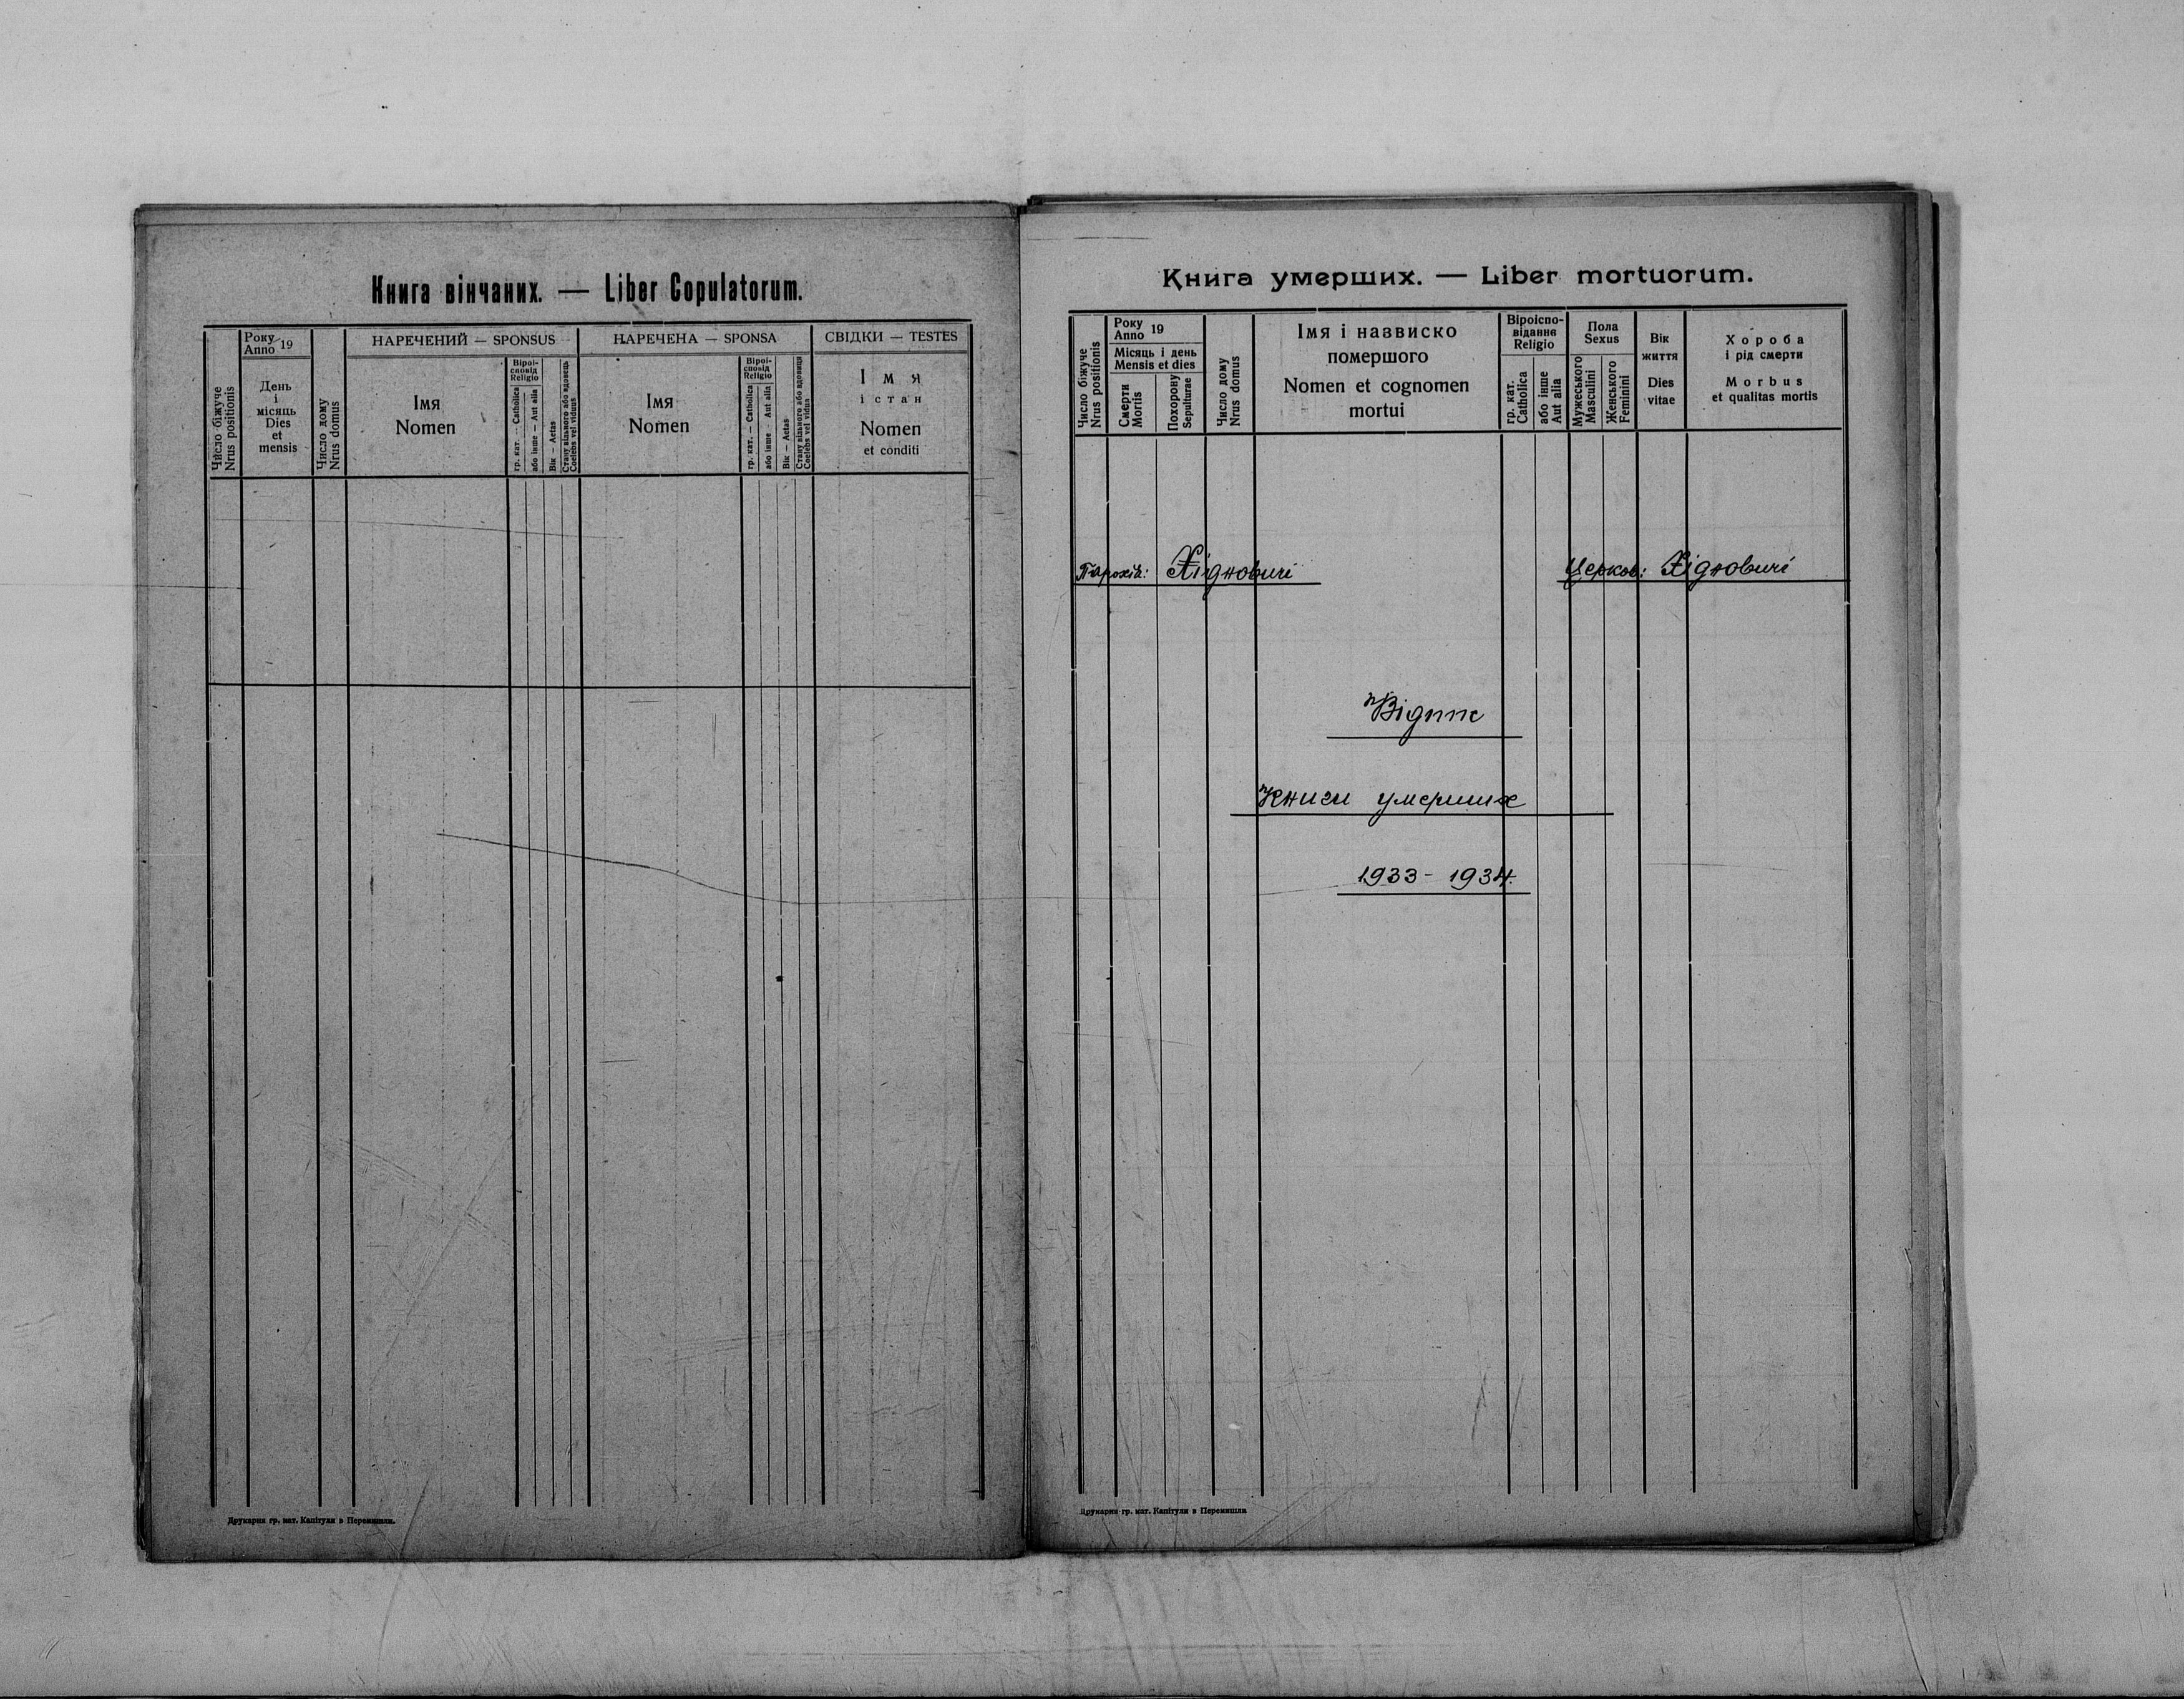 Книга вінчаних. — Liber Copulatorum.
Число біжуче
Nrus positionis
Року
Anno 19
День
і
місяць
Dies
et
mensis
Число дому
Nrus domus
НАРЕЧЕНИЙ — SPONSUS
Імя
Nomen
Віроі-
сповід
Religio
гр. кат. — Catholica
або інше — Aut alia
Вік — Aetas
Стану вільного або вдовець
Coelebs vel viduus
НАРЕЧЕНА — SPONSA
Імя
Nomen
Віроі-
сповід
Religio
гр. кат. — Catholica
або інше — Aut alia
Вік — Aetas
Стану вільного або вдовиця
Coelebs vel vidua
СВІДКИ — TESTES
Імя
і стан
Nomen
et conditi
Друкарня гр. кат. Капітули в Перемишли.
Книга умерших. — Liber mortuorum.
Число біжуче
Nrus positionis
Року
Anno 19
Місяць і день
Mensis et dies
Смерти
Mortis
Похорону
Sepulturae
Число дому
Nrus domus
Імя іназвиско
помершого
Nomen et cognomen
mortui
Віроіспо-
відання
Religio
гр. кат.
Catholica
або інше
Aut alia
Пола
Sexus
Мужеського
Masculini
Женського
Feminini
Вік
життя
Dies
vitae
Хороба
і рід смерти
Morbus
et qualitas mortis
Парохія: Хідновичі Церков: Хідновичі
Відпис
Книги умерших
1933 - 1934.
Друкарня гр. кат. Капітули в Перемишли